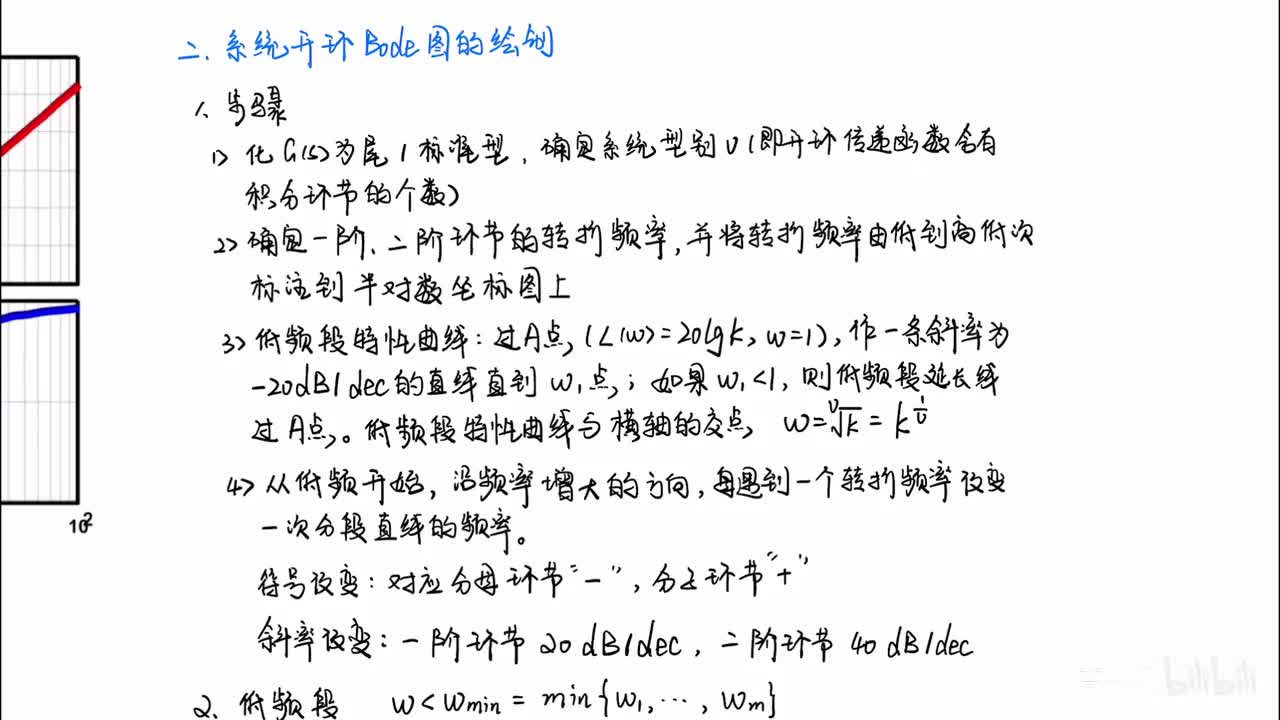 二、系统开环Bode图的绘制
1、步骤
1> 化G(s)为尾1标准型,确定系统型别υ(即开环传递函数含有
积分环节的个数)
2> 确定一阶、二阶环节的转折频率,并将转折频率由低到高依次
标注到半对数坐标图上
3> 低频段特性曲线:过A点,(L(w)=20lgk, w=1),作一条斜率为
-20dB/dec的直线直到w₁点,;如果w₁<1,则低频段延长线
过A点,。低频段特性曲线与横轴的交点, w=ᵛ√k = k^(1/υ)
4> 从低频开始,沿频率增大的方向,每遇到一个转折频率改变
一次分段直线的频率。
10²
符号改变:对应分母环节"−",分子环节"+"
斜率改变:一阶环节 20 dB/dec,二阶环节 40 dB/dec
2、低频段 w<wmin = min{w₁,…, wm}
bilibili